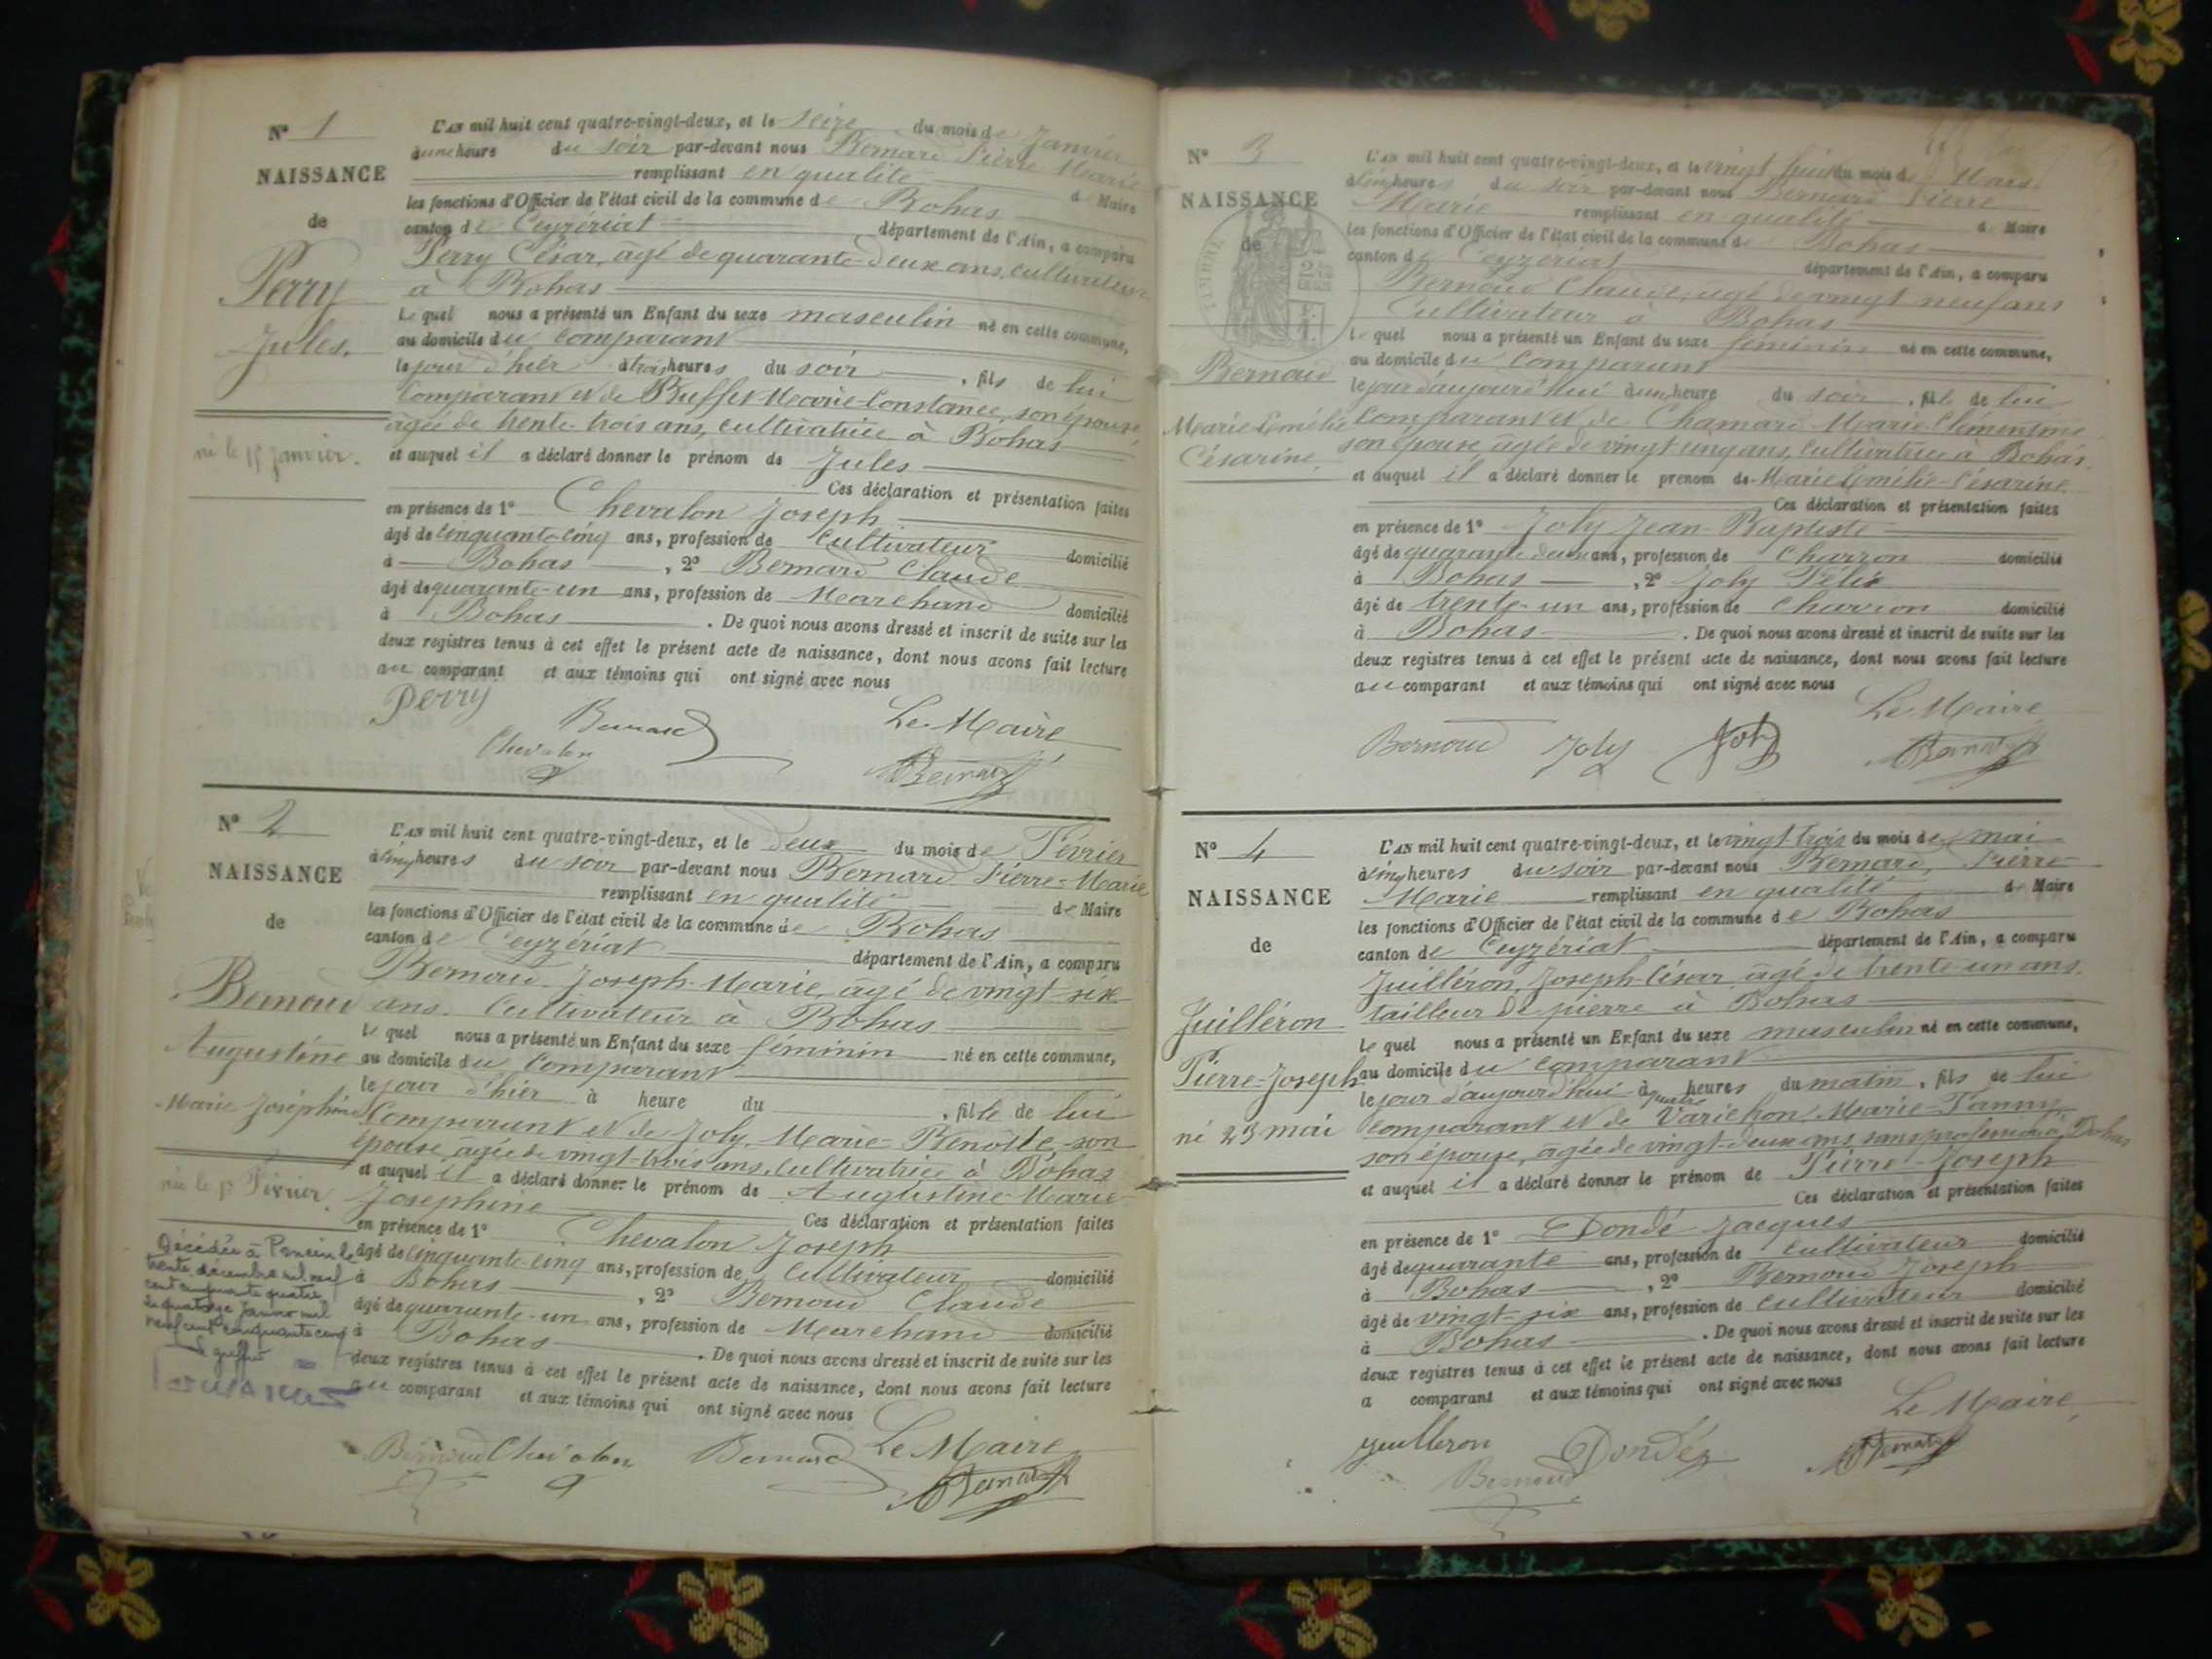 N° 1
NAISSANCE
de
Perry
Jules.
né le 15 janvier.
L'AN mil huit cent quatre-vingt-deux, et le seize du mois de Janvier
à une heure du soir par-devant nous Bernard Pierre Marie
remplissant en qualité de Maire
les fonctions d'Officier de l'état civil de la commune de Bohas
canton de Ceyzériat département de l'Ain, a comparu
Perry César, âgé de quarante-deux ans, cultivateur
à Bohas
Le quel nous a présenté un Enfant du sexe masculin né en cette commune,
au domicile du comparant
le jour d'hier à trois heures du soir, fils de lui
comparant et de Buffet Marie-Constance, son épouse,
âgée de trente-trois ans, cultivatrice à Bohas
et auquel il a déclaré donner le prénom de Jules
Ces déclaration et présentation faites
en présence de 1° Chevalon Joseph
âgé de cinquante-cinq ans, profession de cultivateur domicilié
à Bohas, 2° Bernard Claude
âgé de quarante-un ans, profession de Marchand domicilié
à Bohas. De quoi nous avons dressé et inscrit de suite sur les
deux registres tenus à cet effet le présent acte de naissance, dont nous avons fait lecture
au comparant et aux témoins qui ont signé avec nous
Perry
Bernard
Le Maire
Chevalon
Bernard
N° 2
NAISSANCE
de
Bernoud
Augustine
Marie Joséphine
née le 1er Février.
Décédée à le
trente décembre mil neuf
cent cinquante quatre
le quatorze janvier mil
neuf cent cinquante cinq
L'AN mil huit cent quatre-vingt-deux, et le deux du mois de Février
à cinq heures du soir par-devant nous Bernard Pierre-Marie
remplissant en qualité de Maire
les fonctions d'Officier de l'état civil de la commune de Bohas
canton de Ceyzériat département de l'Ain, a comparu
Bernoud Joseph-Marie, âgé de vingt-six
ans. Cultivateur à Bohas
Le quel nous a présenté un Enfant du sexe féminin né en cette commune,
au domicile du comparant
le jour d'hier à heure du, fille de lui
comparant et de Joly, Marie-Benoîte, son
épouse, âgée de vingt-trois ans, cultivatrice à Bohas
et auquel il a déclaré donner le prénom de Augustine Marie
Joséphine Ces déclaration et présentation faites
en présence de 1° Chevalon Joseph
âgé de cinquante-cinq ans, profession de Cultivateur domicilié
à Bohas, 2° Bernoud Claude
âgé de quarante-un ans, profession de Marchand domicilié
à Bohas. De quoi nous avons dressé et inscrit de suite sur les
deux registres tenus à cet effet le présent acte de naissance, dont nous avons fait lecture
au comparant et aux témoins qui ont signé avec nous
Bernoud Chevalon Bernard Le Maire
Bernard
N° 3
NAISSANCE
de
TIMBRE
Bernoud
Marie Césarine
L'AN mil huit cent quatre-vingt-deux, et le vingt huit du mois de Mars
à cinq heures du soir par-devant nous Bernard Pierre
Marie remplissant en qualité de Maire
les fonctions d'Officier de l'état civil de la commune de Bohas
canton de Ceyzériat département de l'Ain, a comparu
Bernoud Claude, âgé de vingt neuf ans
Cultivateur à Bohas
Le quel nous a présenté un Enfant du sexe féminin né en cette commune,
au domicile du comparant
le jour d'aujourd'hui à une heure du soir, fille de lui
comparant et de Chamard Marie Clémentine
son épouse, âgée de vingt cinq ans, cultivatrice à Bohas.
et auquel il a déclaré donner le prénom de Marie Césarine
Ces déclaration et présentation faites
en présence de 1° Joly Jean-Baptiste
âgé de quarante deux ans, profession de Charron domicilié
à Bohas, 2° Joly Félix
âgé de trente-un ans, profession de Charron domicilié
à Bohas. De quoi nous avons dressé et inscrit de suite sur les
deux registres tenus à cet effet le présent acte de naissance, dont nous avons fait lecture
au comparant et aux témoins qui ont signé avec nous
Le Maire
Bernoud Joly Joly Bernard
N° 4
NAISSANCE
de
Juilléron
Pierre-Joseph
né 23 mai
L'AN mil huit cent quatre-vingt-deux, et le vingt trois du mois de mai
à cinq heures du soir par-devant nous Bernard, Pierre
Marie remplissant en qualité de Maire
les fonctions d'Officier de l'état civil de la commune de Bohas
canton de Ceyzériat département de l'Ain, a comparu
Juilléron, Joseph-César, âgé de trente-un ans
tailleur de pierre à Bohas
Le quel nous a présenté un Enfant du sexe masculin né en cette commune,
au domicile du comparant
le jour d'aujourd'hui à quatre heures du matin, fils de lui
comparant et de Varichon Marie-Fanny
son épouse, âgée de vingt-deux ans, sans profession à Bohas
et auquel il a déclaré donner le prénom de Pierre-Joseph
Ces déclaration et présentation faites
en présence de 1° Dondé Jacques
âgé de quarante ans, profession de cultivateur domicilié
à Bohas, 2° Bernoud Joseph
âgé de vingt-six ans, profession de cultivateur domicilié
à Bohas. De quoi nous avons dressé et inscrit de suite sur les
deux registres tenus à cet effet le présent acte de naissance, dont nous avons fait lecture
a comparant et aux témoins qui ont signé avec nous
Le Maire
Juilleron Dondé Bernard
Bernoud